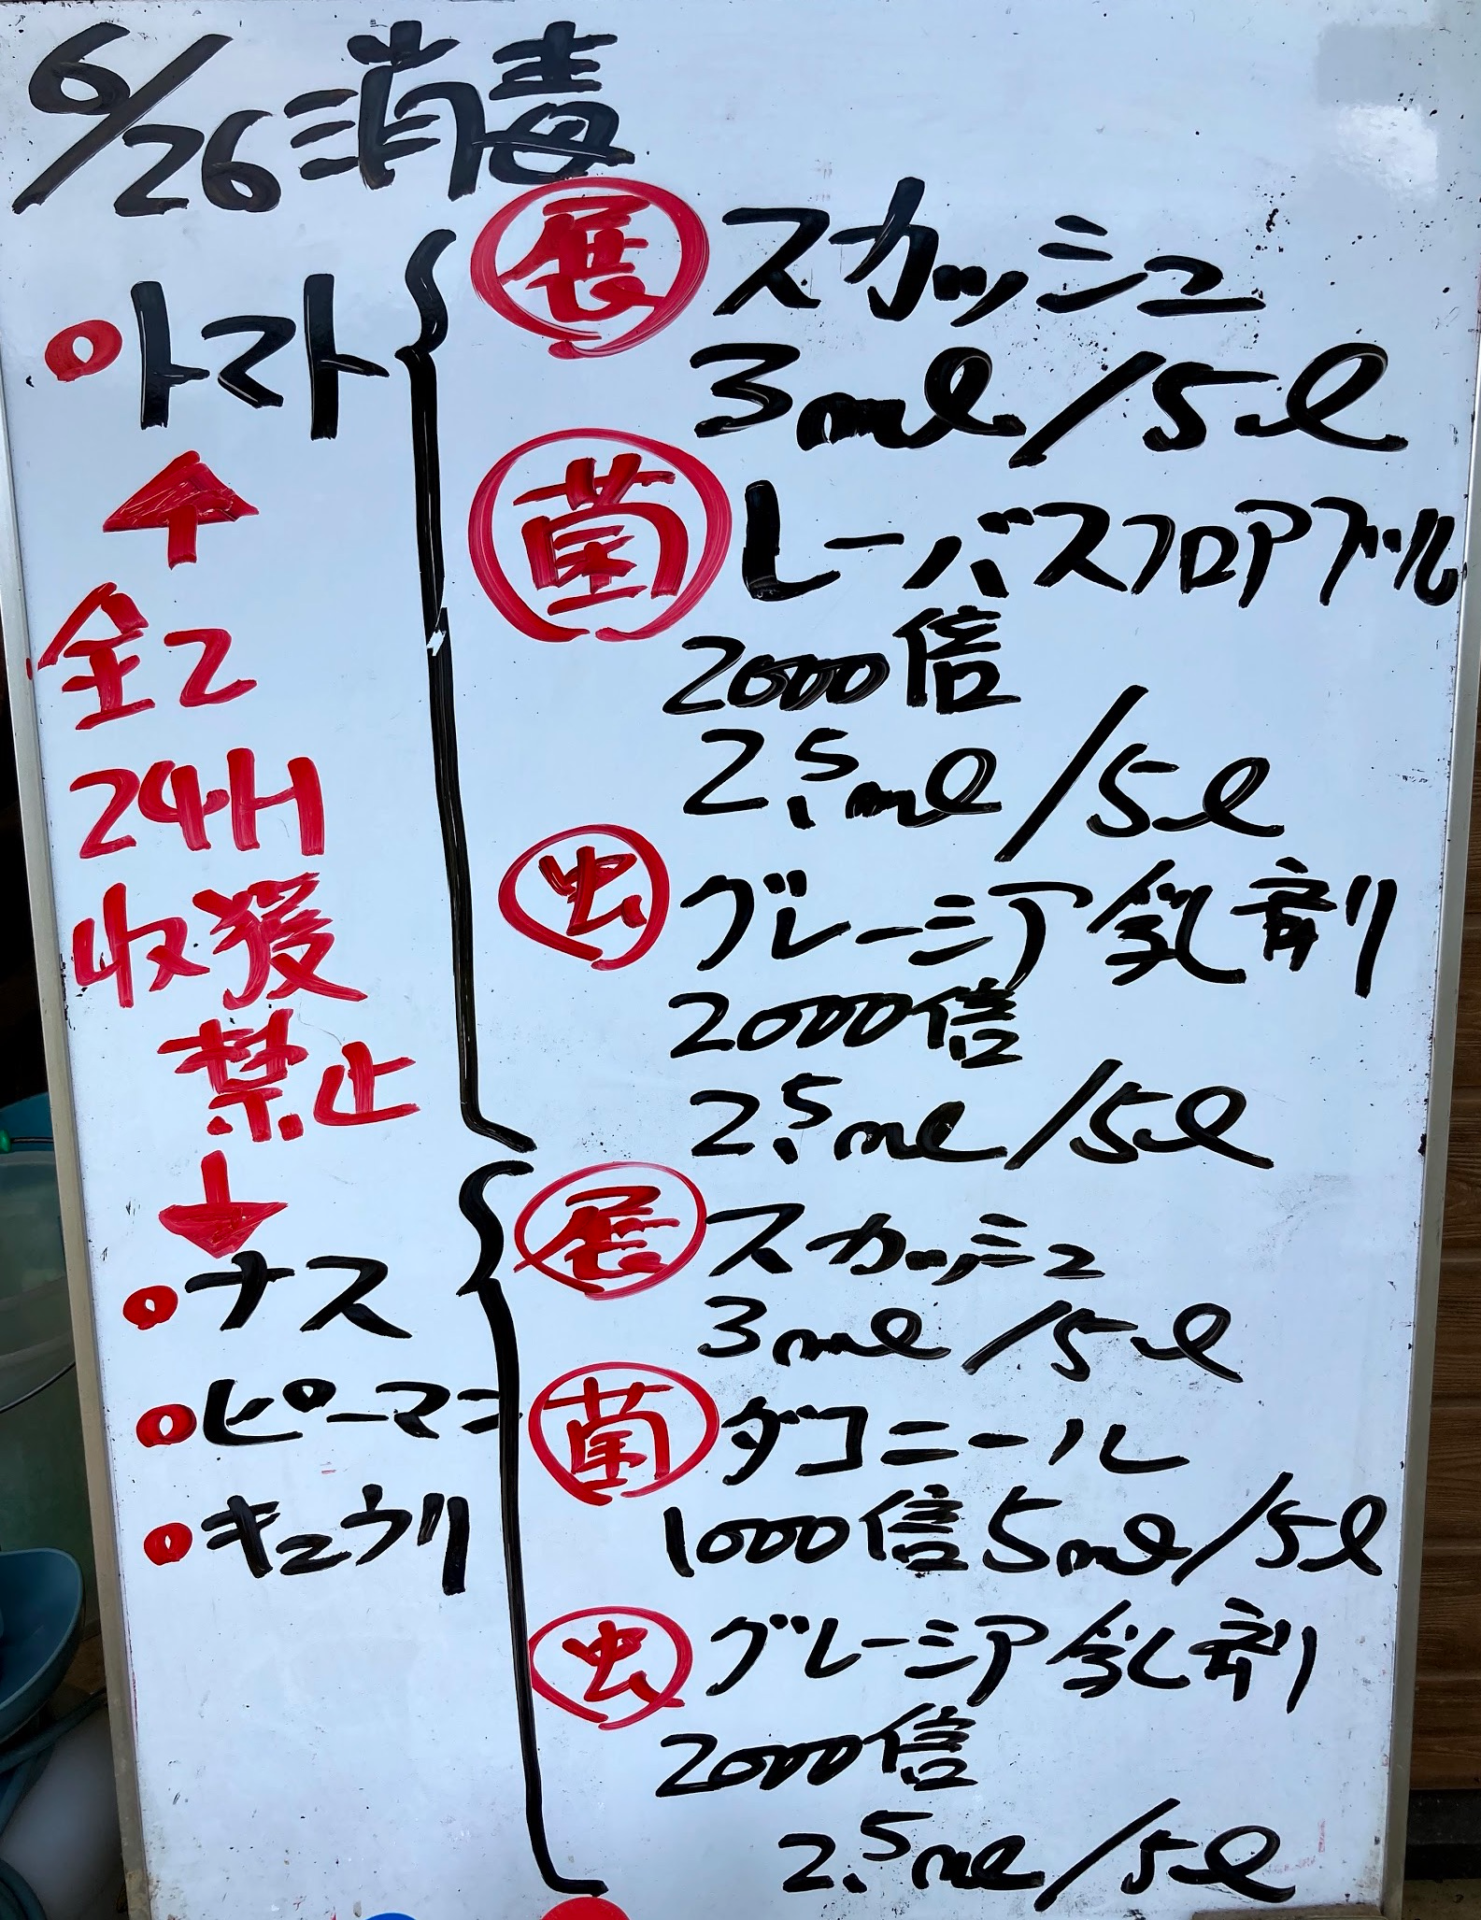 6/26消毒
トマト
展 スカッシュ
3ml/5l
菌 レーバスフロアブル
2000倍
2.5ml/5l
虫 グレーシア乳剤
2000倍
2.5ml/5l
↑
全て
24H
収獲
禁止
↓
ナス
ピーマン
キュウリ
展 スカッシュ
3ml/5l
菌 ダコニール
1000倍 5ml/5l
虫 グレーシア乳剤
2000倍
2.5ml/5l